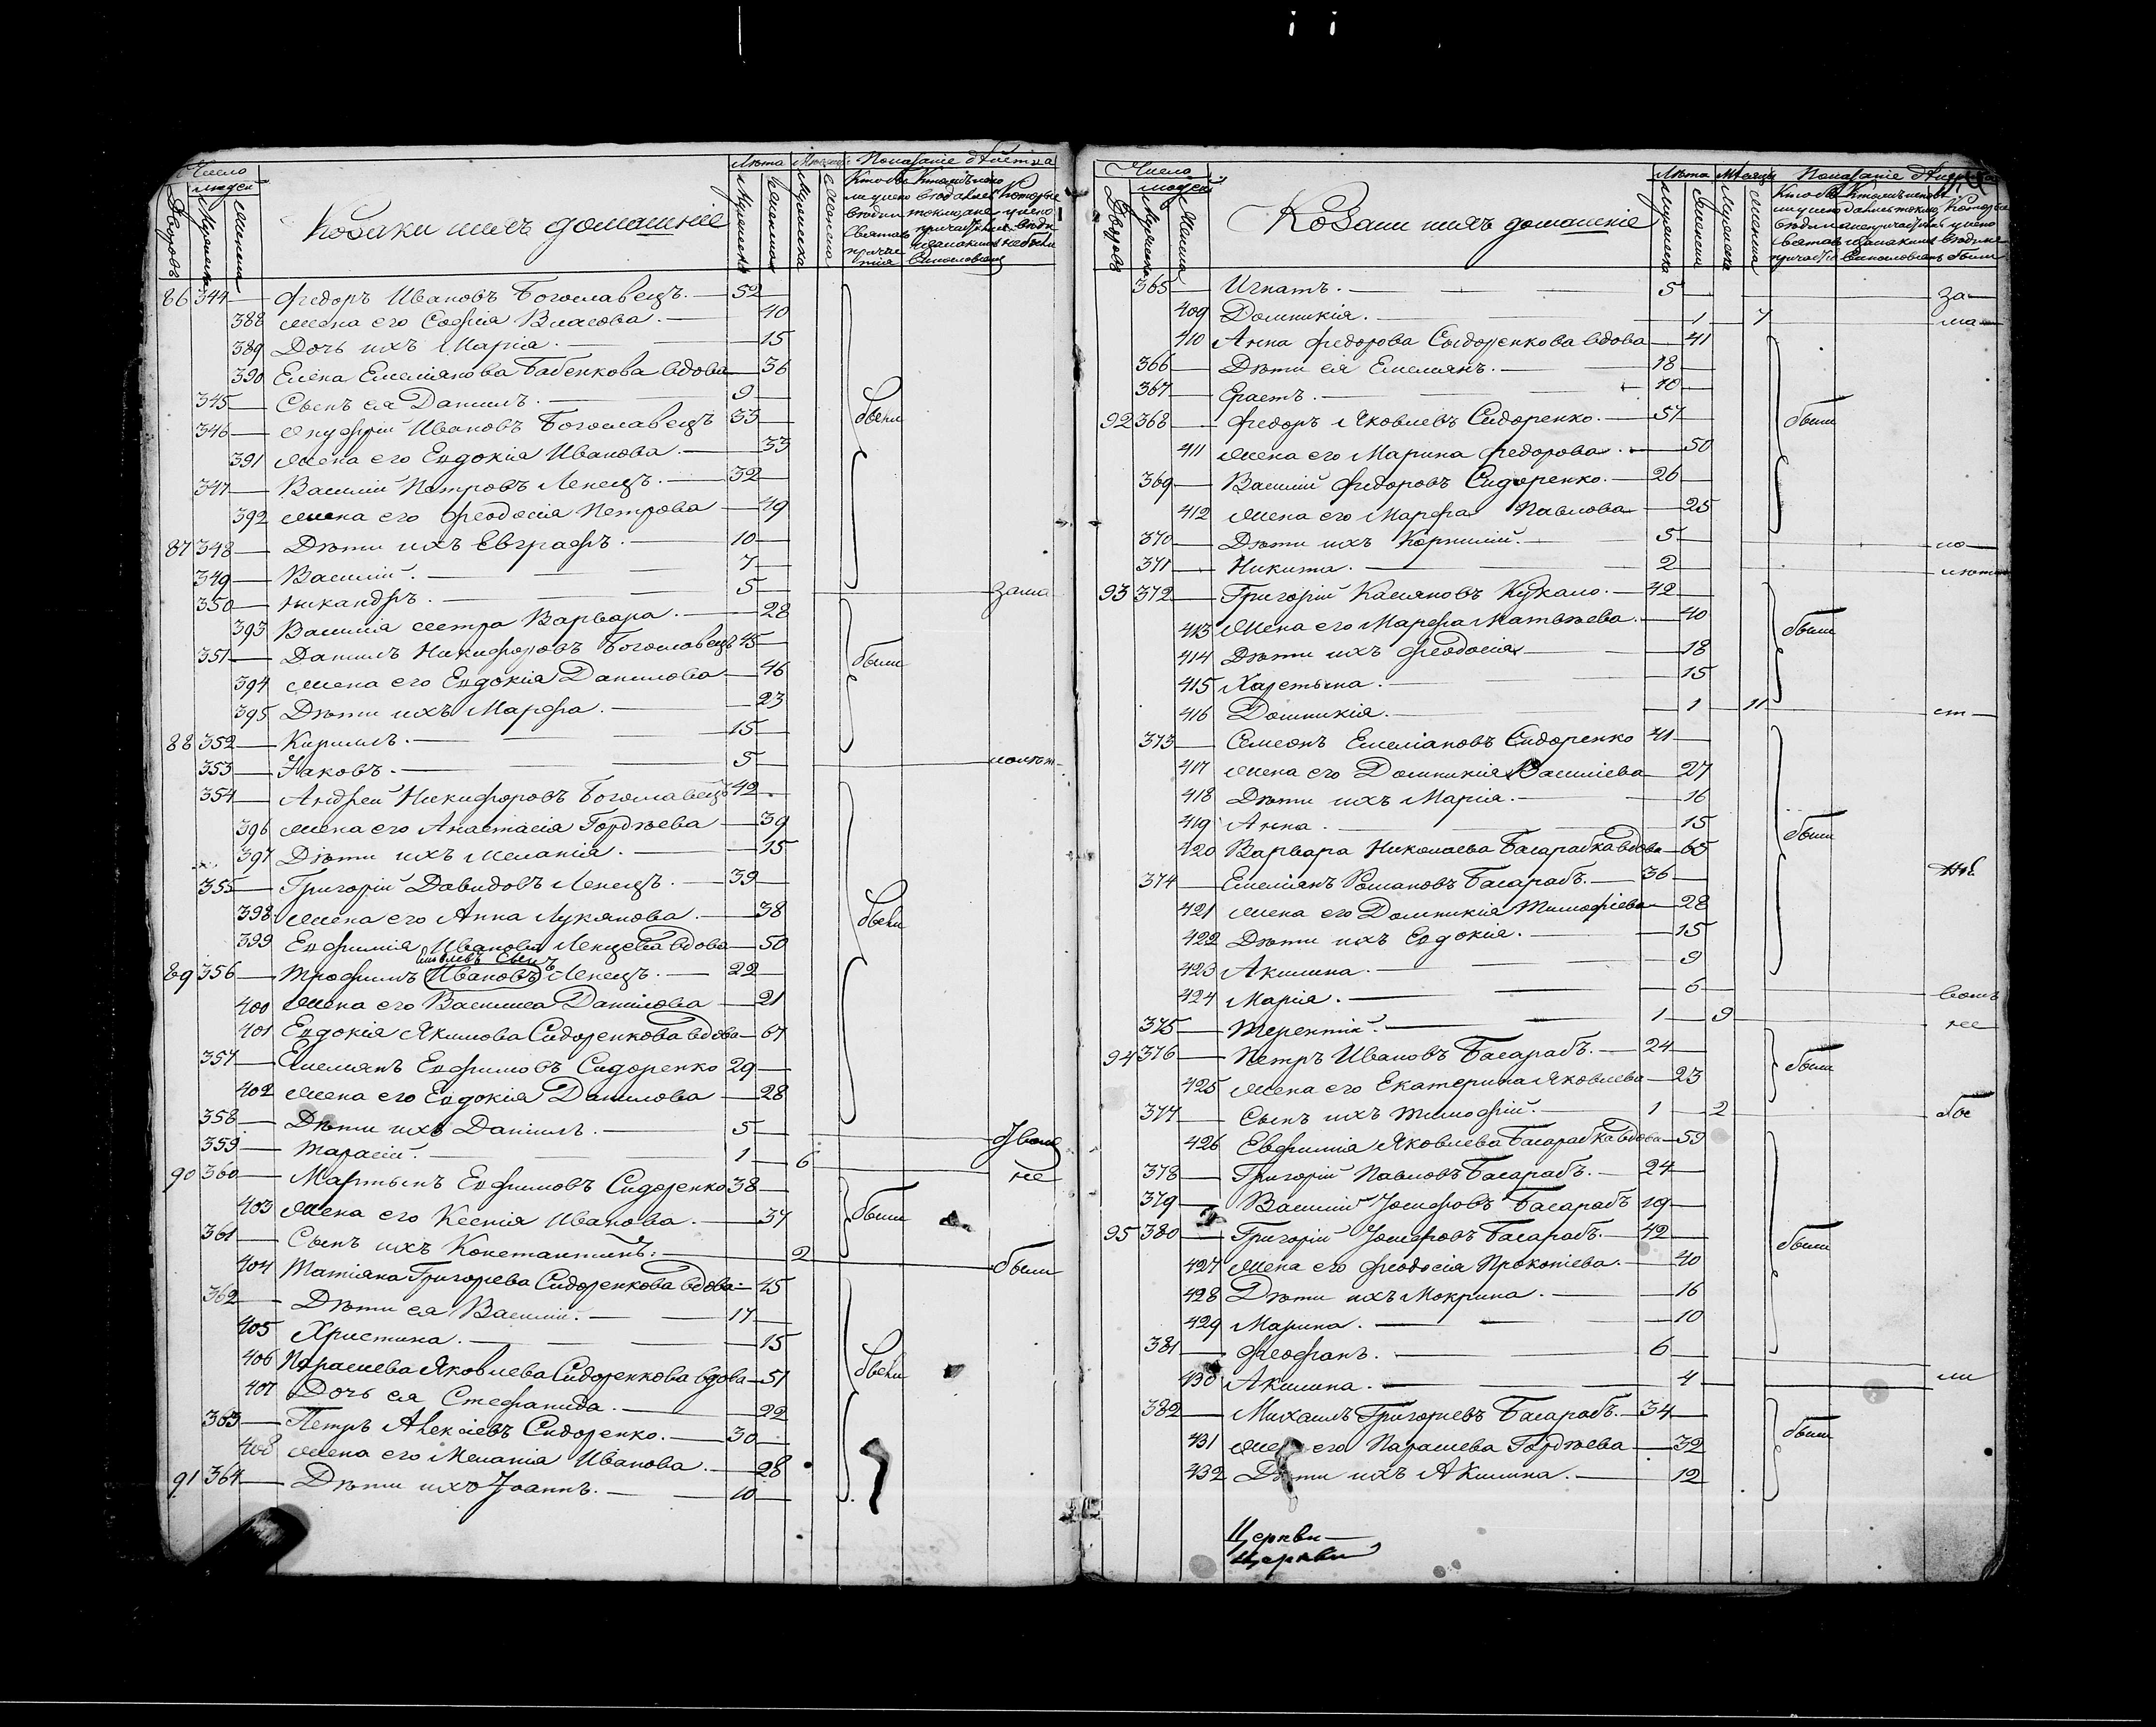 Число
людей
Дворовъ
Мужеска
Женска
Козаки и ихъ домашніе
Лѣта
Мужеска
Женска
Мужеска
Показаніе дѣйства
86 344 Федоръ Ивановъ Богославецъ. 52
388 Жена его Софія Власова. 40
389 Дочь ихъ Марія. 15
390 Елена Емеліянова Бабенкова вдова 36
345 Сынъ ея Даніилъ. 9
были
346 Онуфрій Ивановъ Богославецъ 33
391 Жена его Евдокія Иванова. 33
347 Василій Петровъ Ленецъ. 32
392 Жена его Феодосія Петрова 49
87 348 Дѣти ихъ Евграфъ. 10
349 Василій. 7
350 Никандръ. 5
393 Василія сестра Варвара. 28
351 Даніилъ Никифоровъ Богославецъ 45
были
394 Жена его Евдокія Данилова 46
395 Дѣти ихъ Марфа. 23
88 352 Кириллъ. 15
353 Яковъ. 5
354 Андрей Никифоровъ Богославецъ 42
396 Жена его Анастасія Гордѣева 39
397 Дѣти ихъ Меланія. 15
355 Григорій Давидовъ Ленецъ. 39
398 Жена его Анна Лукянова. 38
были
399 Евфимія Иванова Ленцева вдова 50
89 356 Трофимъ Ивановъ Ленецъ. 22
400 Жена его Василиса Данилова 21
401 Евдокія Якимова Сидоренкова вдова 67
357 Емеліянъ Евфимовъ Сидоренко 29
402 Жена его Евдокія Данилова 28
358 Дѣти ихъ Даніилъ. 5
359 Тарасій. 1 6
90 360 Мартынъ Евфимовъ Сидоренко 38
не
403 Жена его Ксенія Иванова. 37
были
361 Сынъ ихъ Константинъ. 2
были
404 Татіяна Григорева Сидоренкова вдова 45
362 Дѣти ея Василій. 17
405 Христина. 15
406 Параскева Яковлева Сидоренкова вдова 51
были
407 Дочь ея Стефанида. 22
363 Петръ Алексіевъ Сидоренко. 30
408 Жена его Меланія Иванова. 28
91 364 Дѣти ихъ Іоаннъ. 10
Число
людей
Дворовъ
Мужеска
Женска
Козаки и ихъ домашніе
Лѣта
Мѣсяцы
Мужеска
Женска
Мужеска
Женска
Показаніе
365 Игнатъ. 5 за
409 Домникія. 1 7 ма
410 Анна Федорова Сидоренкова вдова 41
366 Дѣти ея Емеліянъ. 18
367 Ерастъ. 10
92 368 Федоръ Яковлевъ Сидоренко. 57
были
411 Жена его Марина Федорова. 50
369 Василій Федоровъ Сидоренко. 26
412 Жена его Марфа Павлова 25
370 Дѣти ихъ Корнилій. 5 ло
371 Никита. 2
93 372 Григорій Касяновъ Кукало. 42
413 Жена его Марфа Матвѣева. 40
были
414 Дѣти ихъ Феодосія 18
415 Харетына. 15
416 Домникія. 1 11 ст
373 Семеонъ Емеліановъ Сидоренко 41
417 Жена его Домникія Василіева 27
418 Дѣти ихъ Марія. 16
419 Анна. 15
были
420 Варвара Николаева Басарабкова вдова 65
374 Емеліянъ Романовъ Басарабъ. 36
421 Жена его Домникія Тимофіева 28
422 Дѣти ихъ Евдокія. 15
423 Акилина. 9
424 Марія. 6
375 Терентій. 1 9
94 376 Петръ Ивановъ Басарабъ. 24
были
425 Жена его Екатерина Яковлева 23
377 Сынъ ихъ Тимофій. 1 2
426 Евфимія Яковлева Басарабкова вдова 59
378 Григорій Павловъ Басарабъ. 24
379 Василій Іосифовъ Басарабъ 19
95 380 Григорій Іосифовъ Басарабъ. 42
были
427 Жена его Феодосія Прокопіева. 40
428 Дѣти ихъ Мокрина. 16
429 Марина. 10
381 Феофанъ. 6
430 Акилина. 4 ли
382 Михаилъ Григориевъ Басарабъ. 34
были
431 его Параскева Гордѣева 32
432 Дѣти ихъ Акилина. 12
Церкви
Церкви